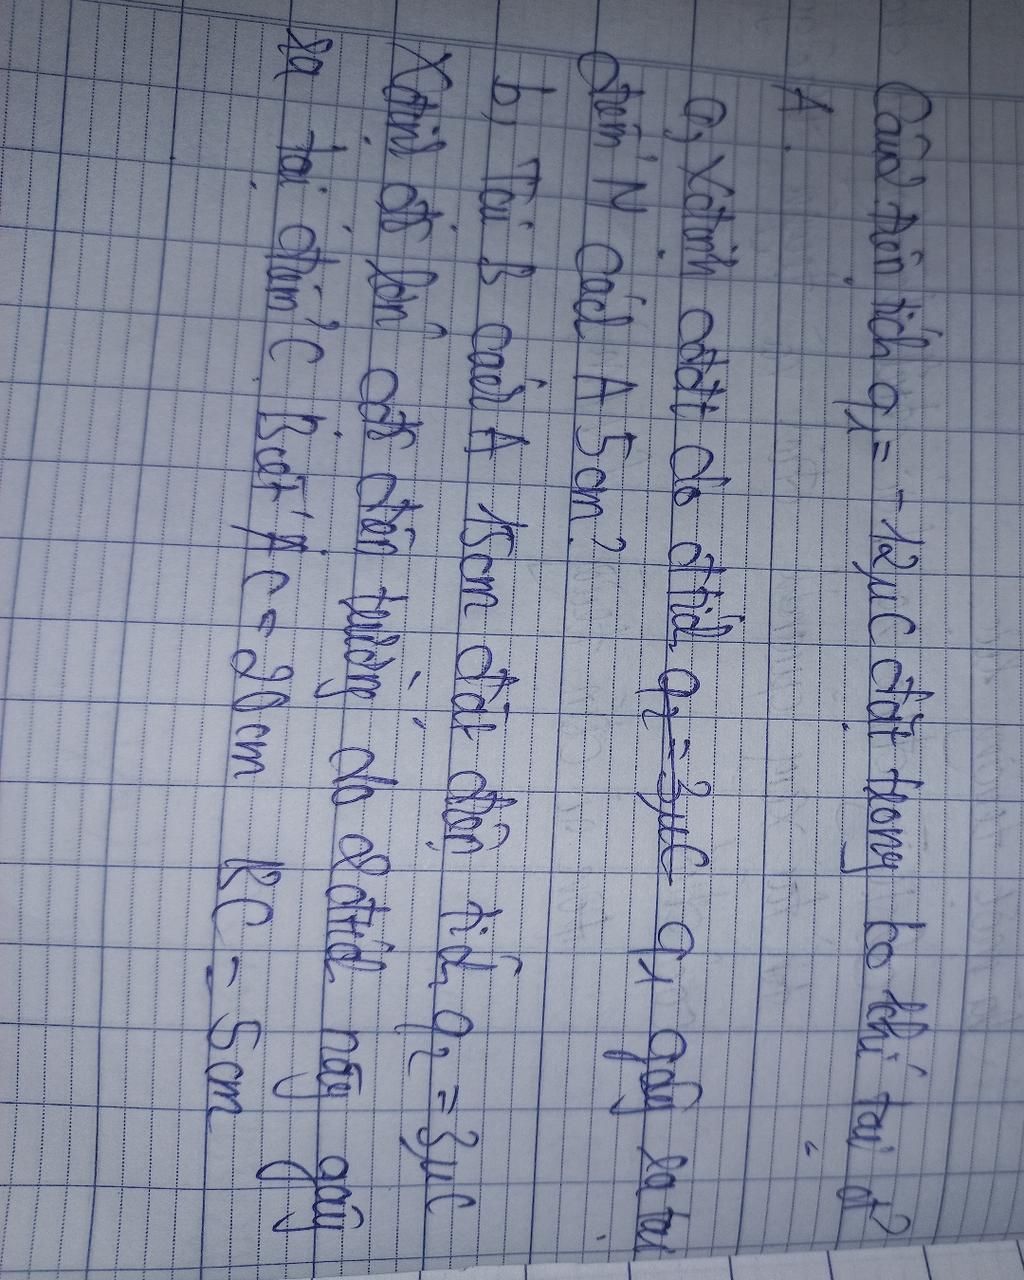 Câu2. Điện tích q₁ = -12μC đặt trong ko khí tại đ?
A.
a, Xđịnh cđđt do đtích q₂=3μC q₁ gây ra tại
điểm N cách A 5cm?
b, Tại B cách A 15cm đặt điện tích q₂ = 3μC
Xđịnh độ lớn cđ điện trường do 2 đtích này gây
ra tại điểm C Biết AC = 20cm BC = 5cm